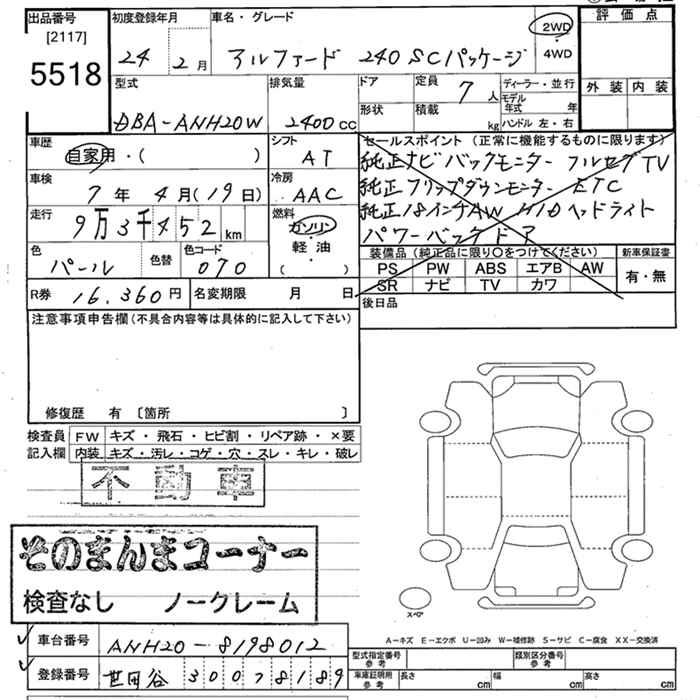 出品番号 初度登録年月 車名・グレード 評価点
[2117] 24 2月 アルファード 240 SCパッケージ 2WD
5518 4WD
型式 排気量 ドア 定員 7人 ディーラー・並行 外装 内装
モデル年式 年
DBA-ANH20W 2400cc 形状 積載 kg ハンドル 左・右
車歴 シフト セールスポイント(正常に機能するものに限ります)
自家用・( ) AT 純正ナビ バックモニター フルセグTV
車検 冷房 純正フリップダウンモニター ETC
7年 4月(19日) AAC 純正18インチAW HIDヘッドライト
走行 燃料 パワーバックドア
9万3千452km ガソリン・
色 色替 色コード 軽油・ 装備品(純正品に限り○をつけてください) 新車保証書
パール 070 ( ) PS PW ABS エアB AW 有・無
R券 16,360円 名変期限 月 日 SR ナビ TV カワ
注意事項申告欄(不具合内容等は具体的に記入して下さい) 後日品
修復歴 有 〔箇所 〕
検査員 FW キズ・飛石・ヒビ割・リペア跡・×要
記入欄 内装 キズ・汚レ・コゲ・穴・スレ・キレ・破レ
不動車
そのまんまコーナー
検査なし ノークレーム
スペア
A-キズ E-エクボ U-凹み W-補修跡 S-サビ C-腐食 XX-交換済
車台番号 ANH20-8198012 型式指定番号 参考 類別区分番号 参考
登録番号 世田谷 300 す 8189 車庫証明用 参考 長さ cm 幅 cm 高さ cm